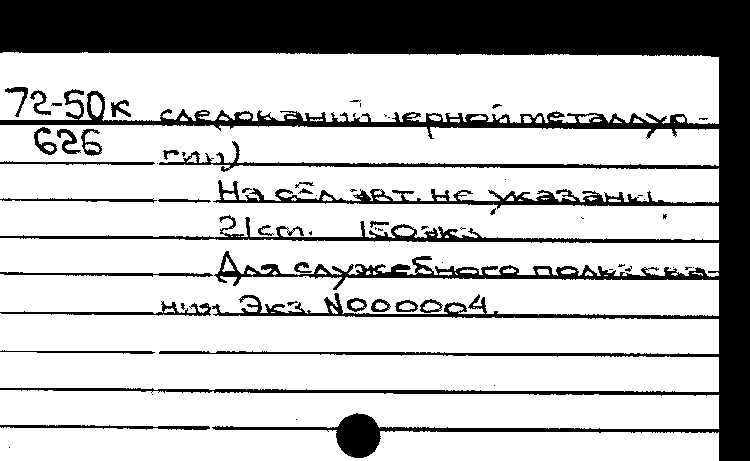 72-50к следований черной металлур-
626 гии)
На обл. авт. не указаны.
21cm. 150экз
Для служебного пользова-
ния. Экз. N000004.